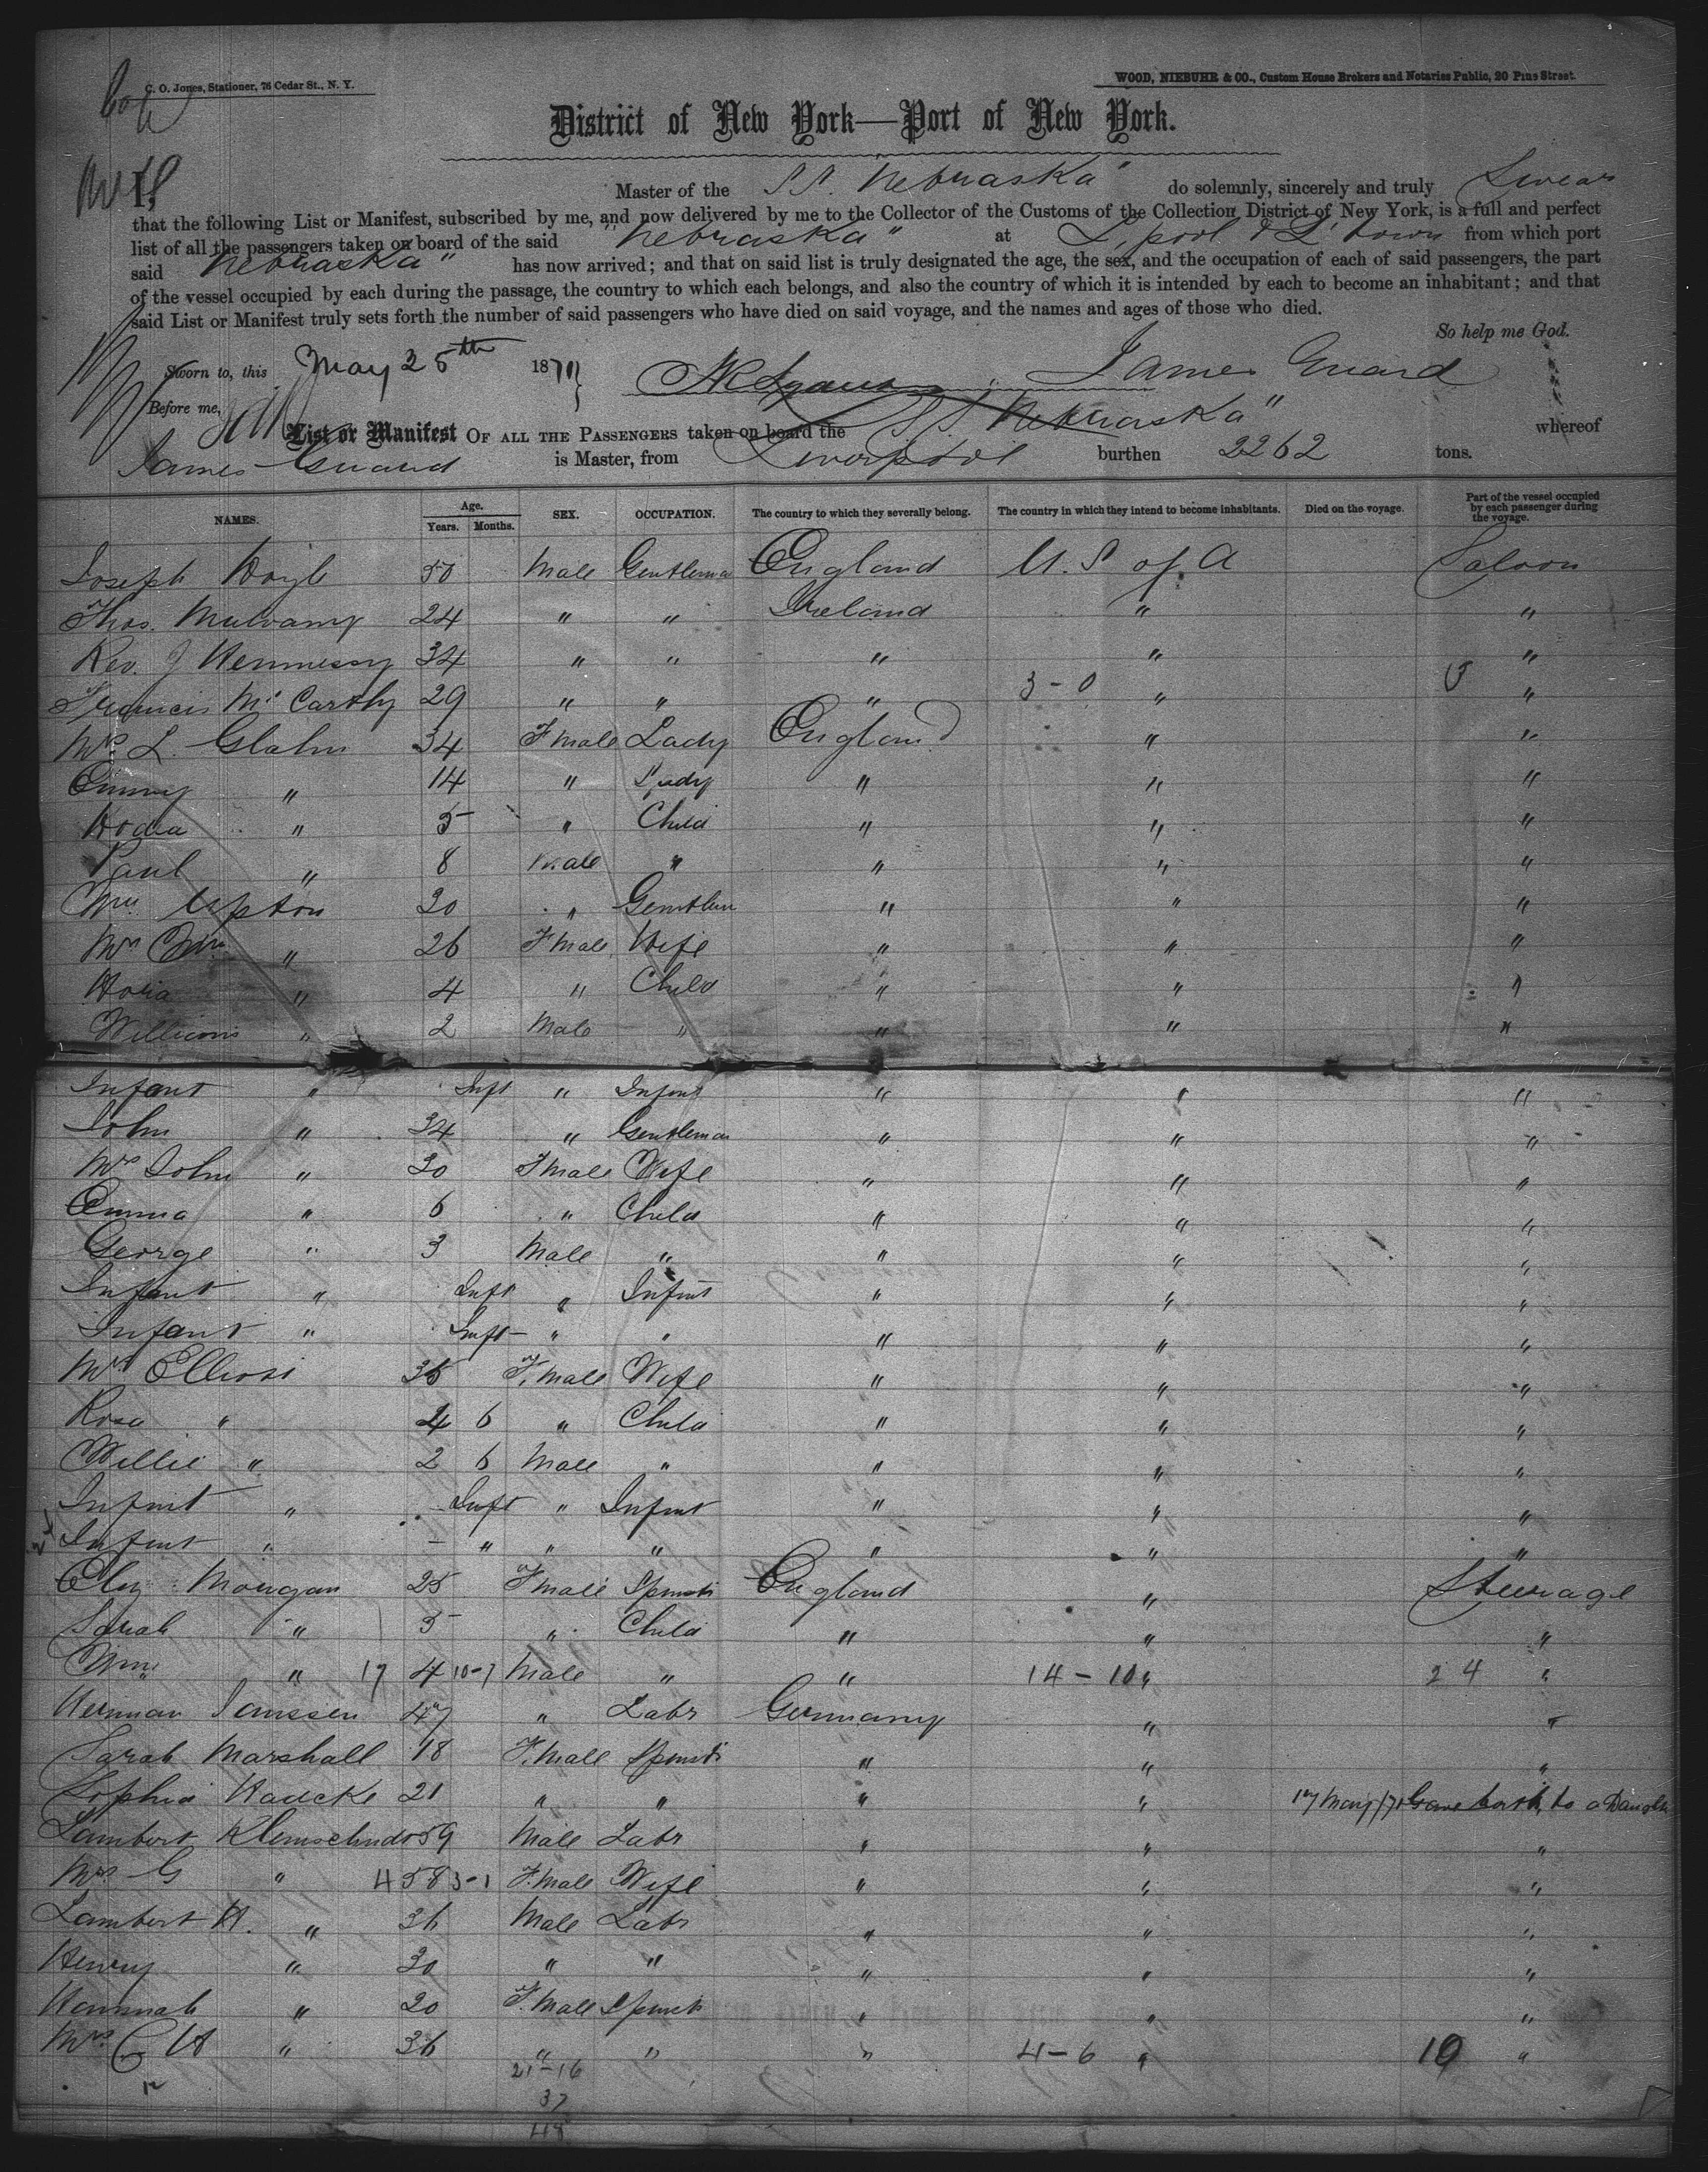 C. O. Jones, Stationer, 76 Cedar St., N. Y.
WOOD, NIEBUHR & CO., Custom House Brokers and Notaries Public, 20 Pine Street.
District of New York—Port of New York.
I, Master of the S.S. "Nebraska" do solemnly, sincerely and truly Swear
that the following List or Manifest, subscribed by me, and now delivered by me to the Collector of the Customs of the Collection District of New York, is a full and perfect
list of all the passengers taken on board of the said "Nebraska" at L'pool & Q'town from which port
said "Nebraska" has now arrived; and that on said list is truly designated the age, the sex, and the occupation of each of said passengers, the part
of the vessel occupied by each during the passage, the country to which each belongs, and also the country of which it is intended by each to become an inhabitant; and that
said List or Manifest truly sets forth the number of said passengers who have died on said voyage, and the names and ages of those who died.
So help me God.
Sworn to, this May 25th 1871 James Guard
Before me,
List or Manifest OF ALL THE PASSENGERS taken on board the S.S. "Nebraska" whereof
James Guard is Master, from Liverpool burthen 2262 tons.
NAMES. Age. Years. Months. SEX. OCCUPATION. The country to which they severally belong. The country in which they intend to become inhabitants. Died on the voyage. Part of the vessel occupied by each passenger during the voyage.
Joseph 50 Male Gentleman England U.S of A Saloon
Thos. Mulvany 24 " " Ireland " "
Rev. J Hennessy 34 " " " " "
Francis McCarthy 29 " " " 3-0 " "
Mrs L. Glahn 34 Fmale Lady England " "
Emmy " 14 " " " "
" 5 " Child " " "
Paul " 8 Male " " " "
Wm Upton 30 " Gentlem " " "
Mrs Wm " 26 Fmale Wife " " "
" 4 " Child " " "
William " 2 Male " " " "
Infant " Inft " Infant " " "
John " 34 " Gentleman " " "
Mrs John " 30 Fmale Wife " " "
Emma " 6 " Child " " "
George " 3 Male " " " "
Infant " Inft " Infant " " "
Infant " Inft " " " " "
Mrs 35 F.male Wife " " "
Rosa " 4 6 " Child " " "
Willie " 2 6 Male " " " "
Infant " Inft " Infant " " "
Infant " - " " " " " "
Eliz Mongan 25 Fmale Spinstr England " Steerage
Sarah " 5 " Child " " "
Wm " 17 4 10-7 Male " " 14-10 " 24 "
Herman Janssen 47 " Labr Germany " "
Sarah Marshall 18 F.male Spinstr " " "
Sophia 21 " " " " 17 May/71 Gave birth to a Daughter
Lambert 59 Male Labr " " "
Mrs G " 4 58 3-1 F.male Wife " " "
Lambert H. " 36 Male Labr " " "
Henry " 30 " " " " "
Hannah " 20 F.male Spinstr " " "
Mrs C H " 36 " " " 4-6 " 10 "
21-16
37